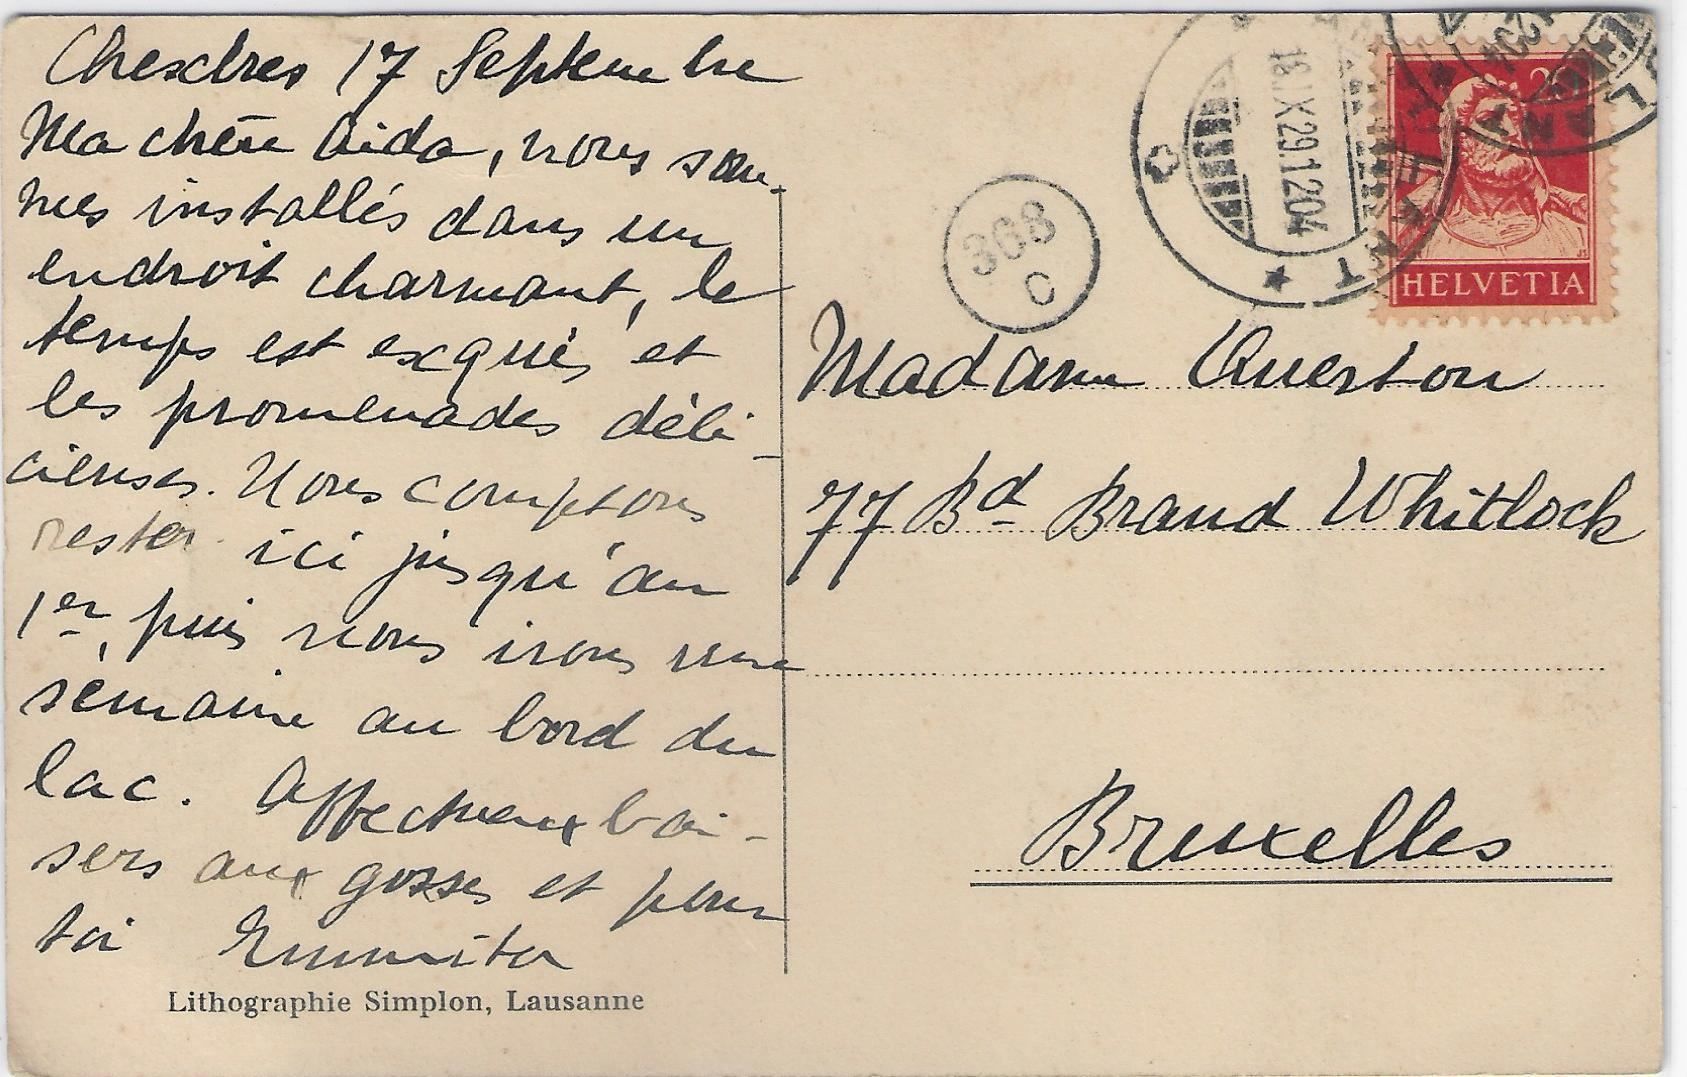 Chexbres 17 Septembre
Ma chère Aida, nous som-
mes installés dans un
endroit charmant, le
temps est exquis et
les promenades déli-
cieuses. Nous comptons
rester ici jusqu'au
1er, puis nous irons une
semaine au bord du
lac. Affectueux bai-
sers aux gosses et pour
toi Emmita
Lithographie Simplon, Lausanne
368
C
18.IX.29.1204
HELVETIA
Madame Querton
77 Bd Brand Whitlock
Bruxelles